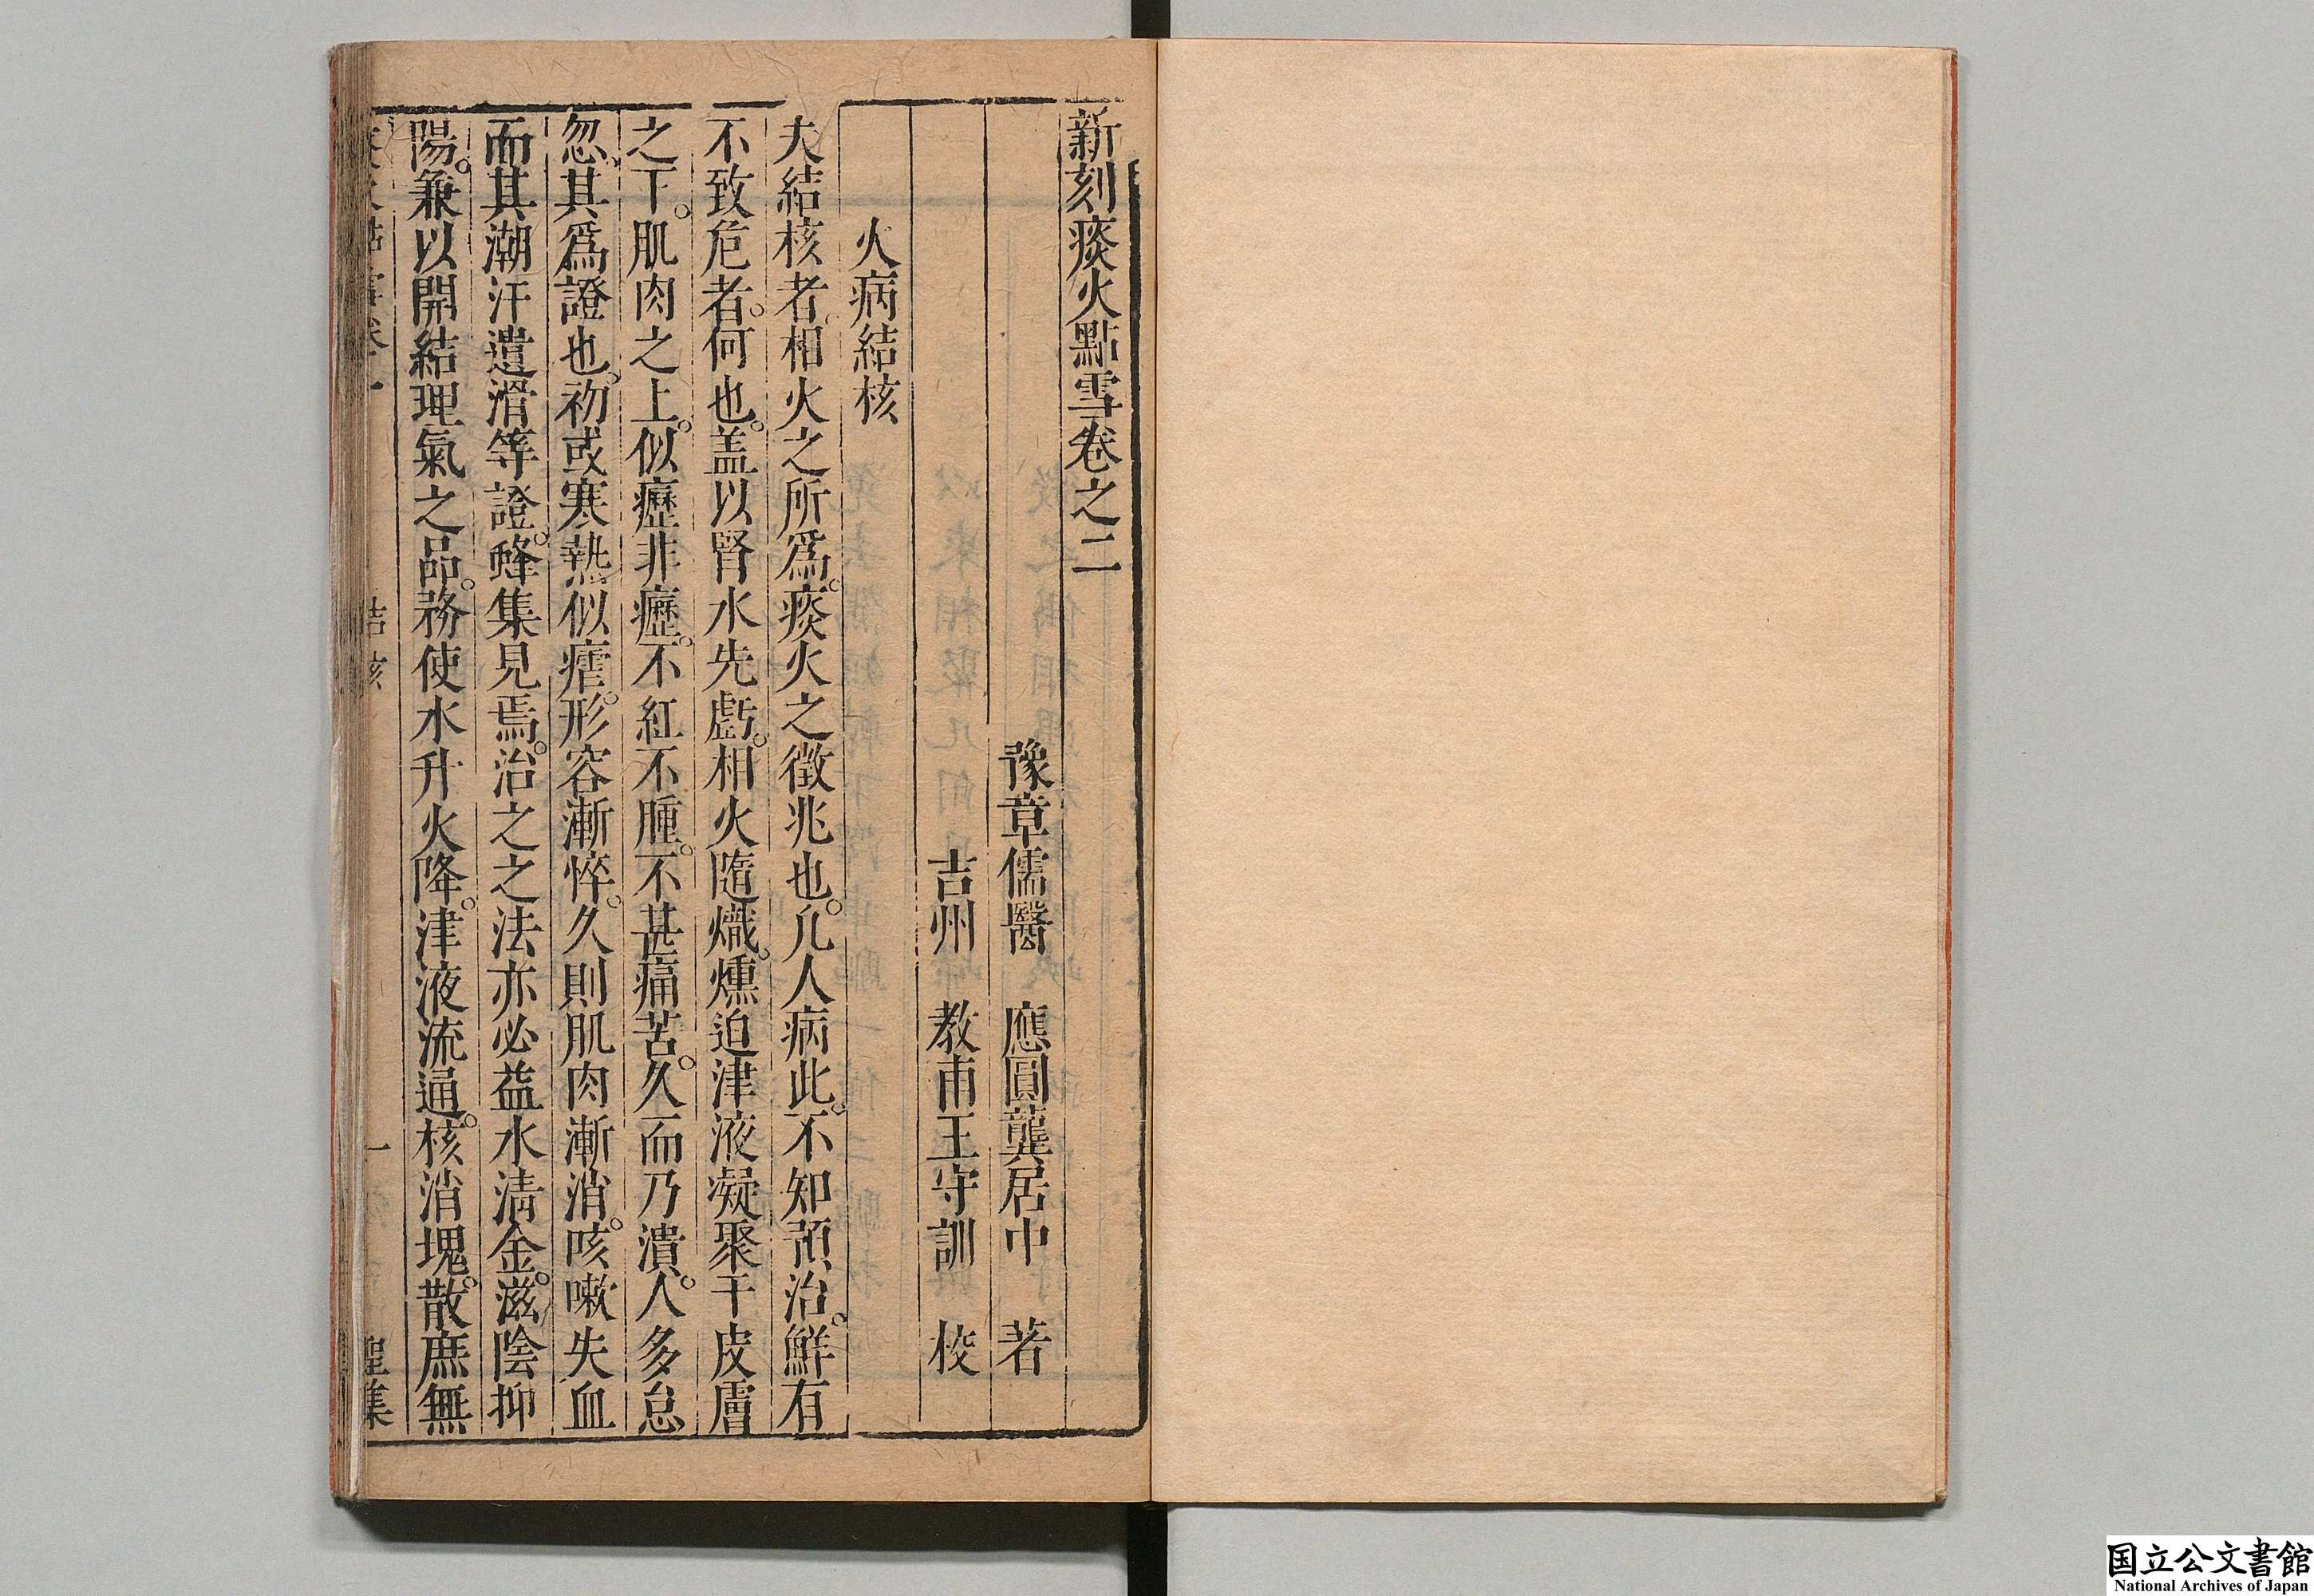 新刻痰火點雪卷之二
豫章儒醫　應圓龔居中　著
吉州　教甫王守訓　校
火病結核
夫結核者相火之所爲。痰火之徵兆也。凢人病此。不知預治。鮮有
不致危者。何也。盖以腎水先虧。相火隨熾。燻迫津液凝聚于皮膚
之下。肌肉之上。似癧非癧。不紅不腫。不甚痛苦。久而乃潰。人多怠
忽。其爲證也。初或寒熱似瘧。形容漸悴。久則肌肉漸消。咳嗽失血
而其潮汗遺滑等證。蜂集見焉。治之之法亦必益水清金。滋陰抑
陽。兼以開結理氣之品。務使水升火降。津液流通。核消塊散。庶無
結核　一　聖集
国立公文書館
National Archives of Japan